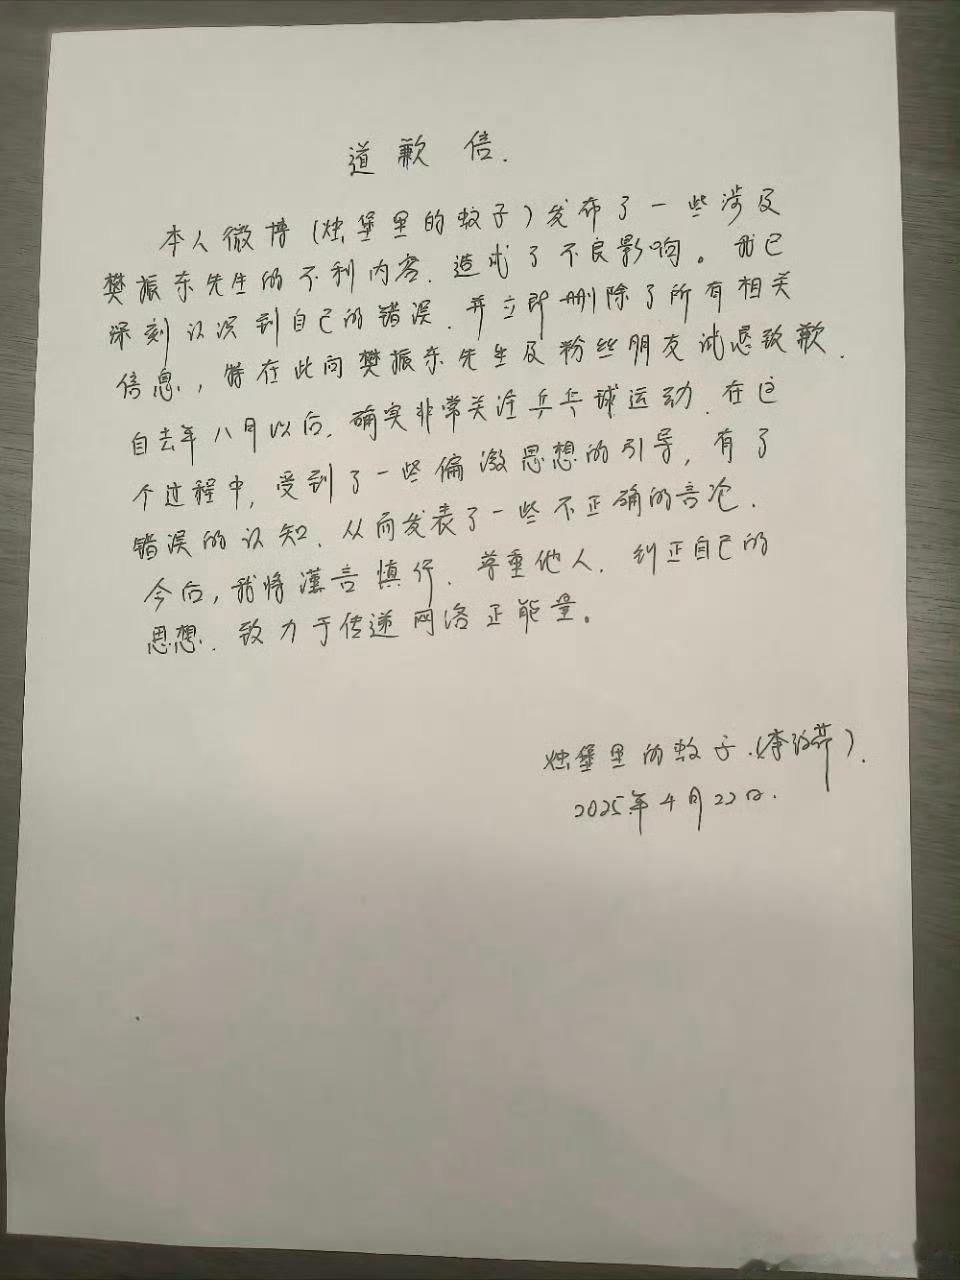 道歉信.
本人微博(烛堡里的蚊子)发布了一些涉及
樊振东先生的不利内容.造成了不良影响。我已
深刻认识到自己的错误.并立即删除了所有相关
信息.,特在此向樊振东先生及粉丝朋友诚恳致歉.
自去年八月以后.确实非常关注乒乓球运动.在这
个过程中,受到了一些偏激思想的引导,有了
错误的认知.从而发表了一些不正确的言论.
今后,我将谨言慎行.尊重他人.纠正自己的
思想.致力于传递网络正能量。
烛堡里的蚊子.(李).
2025年4月22日.